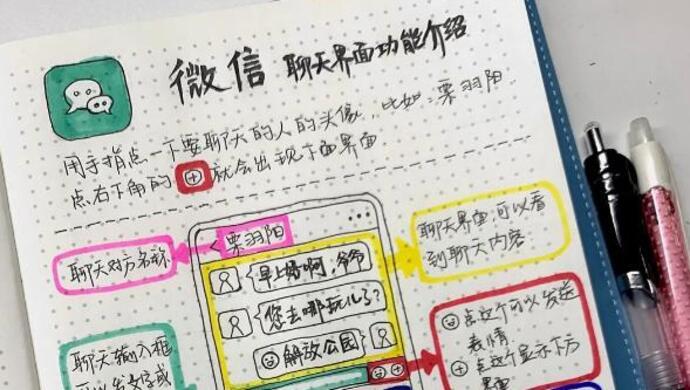 微信 聊天界面功能介绍
用手指点一下要聊天的人的头像，比如：栗羽阳.
点右下角的⊕就会出现下面界面
聊天对方名称
<栗羽阳
聊天界面，可以看
到聊天内容
早上好啊，爷爷
您去哪玩儿了？
解放公园
聊天输入框
可以发文字或
点这个可以发送
表情
点这个显示下方
界面